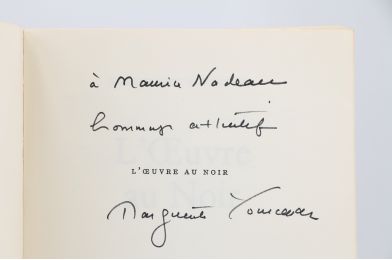 à Maurice Nadeau
hommage attentif
L'ŒUVRE AU NOIR
Marguerite Yourcenar